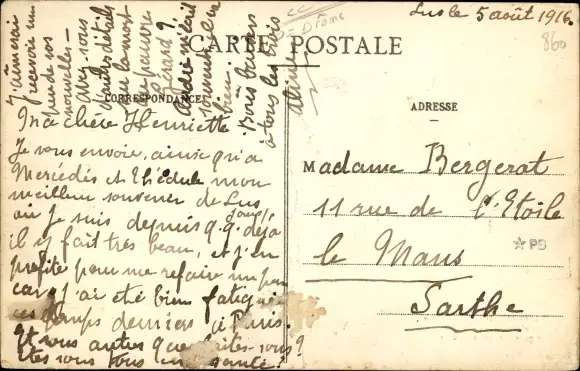 Lus le 5 août 1916.
CARTE POSTALE
CORRESPONDANCE
ADRESSE
Ma chère Henriette
Je vous envoie, ainsi qu'à
Mercédès et Thédule mon
meilleur souvenir de Lus
où je suis depuis q.q. jours déjà
il y fait très beau, et j'en
profite pour me refaire un peu
car j'ai été bien fatiguée
ces temps derniers à Paris.
Et vous autres que faites-vous?
Êtes vous tous en santé?
J'aimerai
recevoir un
peu de vos
nouvelles –
Avez vous
d'autres détails
sur la mort
du pauvre
Gérard?
André m'écrit
souvent, il va
bien.
Bons baisers
à tous les trois
Madame Bergerat
11 rue de l'Etoile
le Mans
Sarthe
860
PD